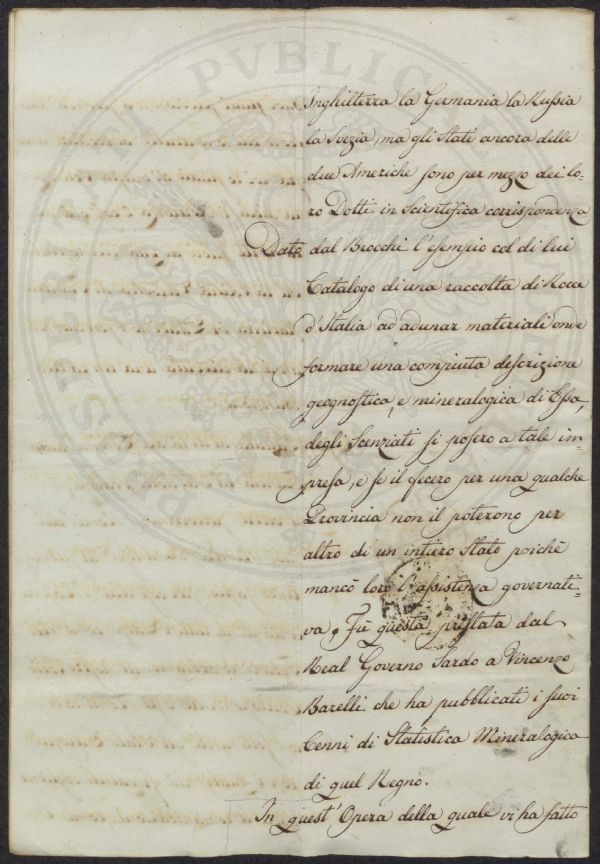 Inghilterra la Germania la Russia
la Svezia, ma gli Stati ancora delle
due Americhe sono per mezzo dei lo-
ro Dotti in scientifica corrispondenza
Dato dal Brocchi l'esempio col di lui
Catalogo di una raccolta di Rocce
d'Italia ad adunar materiali onde
formare una compiuta descrizione
geognostica, e mineralogica di Essa,
degli Scenziati si posero a tale im-
presa, e se il fecero per una qualche
Provincia non il poterono per
altro di un intiero Stato poichè
mancò loro l'assistenza governati-
va. Fù questa prestata dal
Real Governo Sardo a Vincenzo
Barelli che ha pubblicati i suoi
Cenni di Statistica Mineralogica
di quel Regno.
In quest'Opera della quale vi ha fatto